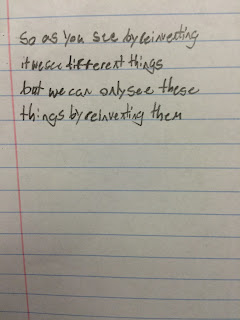 So as you see by reinvesting
it we see different things
but we can only see these
things by reinvesting them